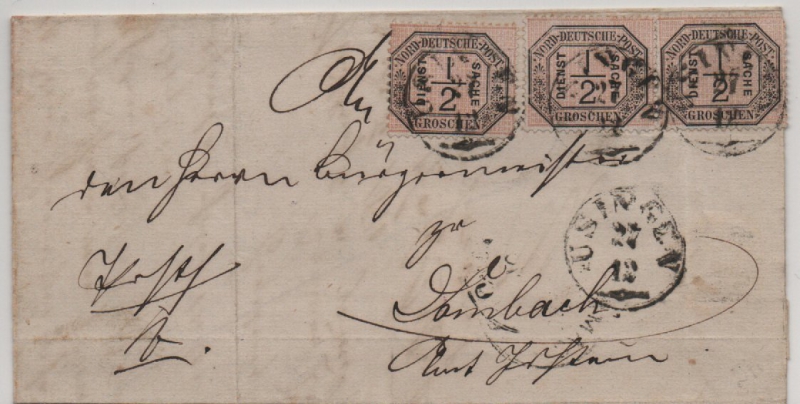 NORD-DEUTSCHE-POST
DIENST 1/2 SACHE
GROSCHEN
NORD-DEUTSCHE-POST
DIENST 1/2 SACHE
GROSCHEN
NORD-DEUTSCHE-POST
DIENST 1/2 SACHE
GROSCHEN
An
den Herrn Bürgermeister
zu
Dombach
Amt Idstein
USINGEN
27
12